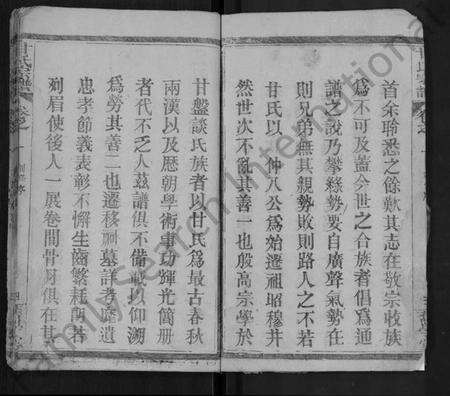 首余聆悉之餘歎其志在敬宗收族
爲不可及蓋今世之合族者倡爲通
譜之說乃攀緣勢要自廣聲氣勢在
則兄弟無其親勢敗則路人之不若
甘氏以一仲八公爲始遷祖昭穆井
然世次不亂其善一也般高宗學於
甘盤談氏族者以甘氏爲最古春秋
兩漢以及歷朝學術事功輝光簡册
者代不乏人兹譜俱不備載以仰溯
爲勞其善二也遷移祠墓詳考靡遺
忠孝節義表彰不懈生齒繁耗朗若
列眉使後人一展卷間骨月俱在其
甘氏宗譜
卷之
FamilySearch International